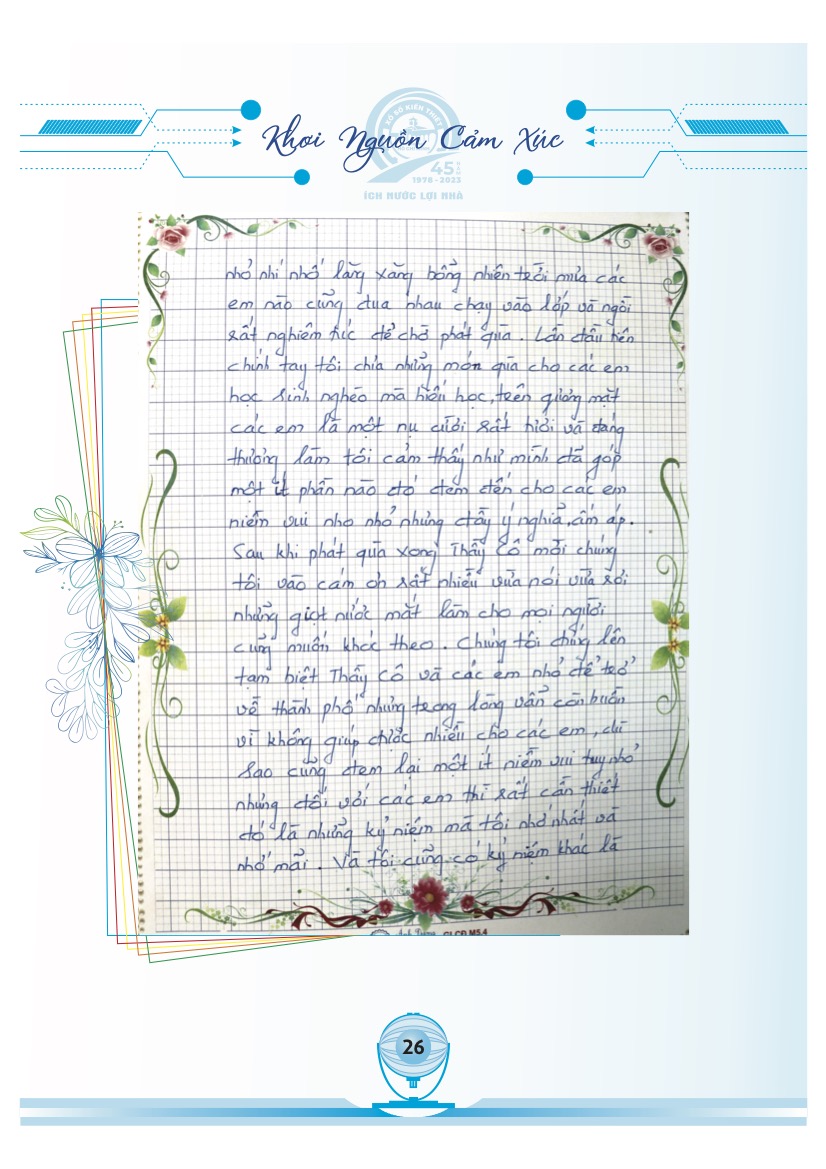 XỔ SỐ KIẾN THIẾT
Khơi Nguồn Cảm Xúc
45 NĂM
1978 - 2023
ÍCH NƯỚC LỢI NHÀ
nhỏ nhí nhố lăng xăng bỗng nhiên trời mưa các
em nào cũng đua nhau chạy vào lớp và ngồi
rất nghiêm túc để chờ phát quà. Lần đầu tiên
chính tay tôi chia những món quà cho các em
học sinh nghèo mà hiếu học, trên gương mặt
các em là một nụ cười rất tươi và đáng
thương làm tôi cảm thấy như mình đã góp
một ít phần nào đó đem đến cho các em
niềm vui nho nhỏ nhưng đầy ý nghĩa, ấm áp.
Sau khi phát quà xong Thầy Cô mời chúng
tôi vào cám ơn rất nhiều vừa nói vừa rơi
những giọt nước mắt làm cho mọi người
cũng muốn khóc theo. Chúng tôi đứng lên
tạm biệt Thầy Cô và các em nhỏ để trở
về thành phố nhưng trong lòng vẫn còn buồn
vì không giúp được nhiều cho các em, dù
sao cũng đem lại một ít niềm vui tuy nhỏ
nhưng đối với các em thì rất cần thiết
đó là những kỷ niệm mà tôi nhớ nhất và
nhớ mãi. Và tôi cũng có kỷ niệm khác là
CLCĐ M5.4
26